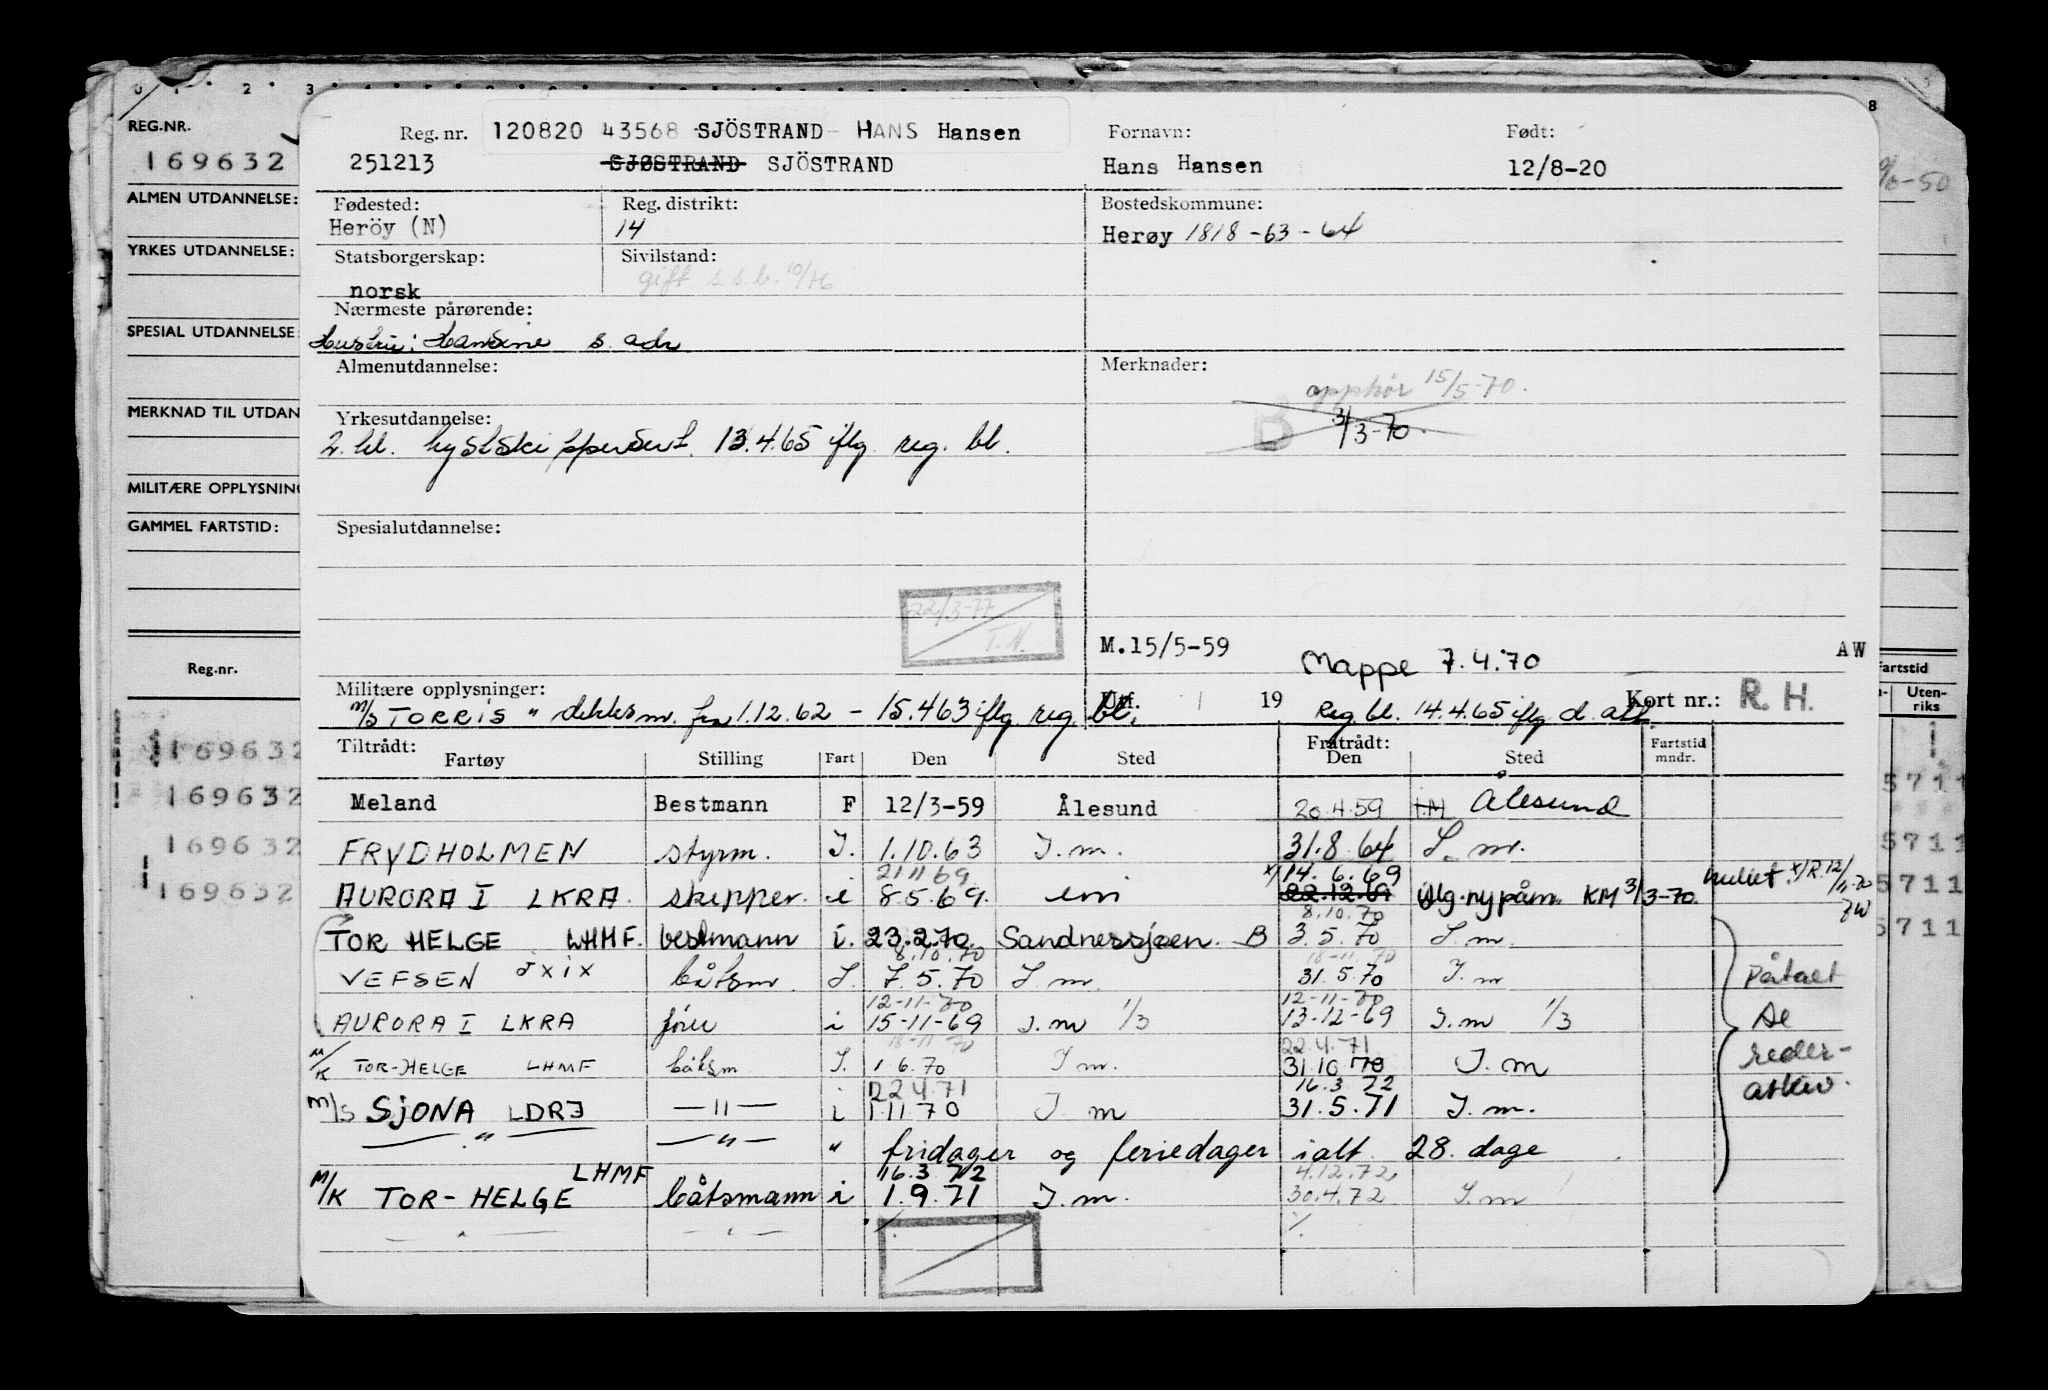 0 1 2 3 8
REG.NR.
169632
ALMEN UTDANNELSE:
YRKES UTDANNELSE:
SPESIAL UTDANNELSE
MERKNAD TIL UTDAN
MILITÆRE OPPLYSNING
GAMMEL FARTSTID:
Reg.nr.
169632
169632
169632
169632
Reg. nr. 120820 43568 SJÖSTRAND HANS Hansen Fornavn: Født:
251213 SJØSTRAND SJÖSTRAND Hans Hansen 12/8-20
Fødested: Reg. distrikt: Bostedskommune:
Heröy (N) 14 Herøy 1818-63-64
Statsborgerskap: Sivilstand:
norsk gift s.s.b. 10/76
Nærmeste pårørende:
Hustru: Hansine s. adr
Almenutdannelse: Merknader:
opphør 15/5-70.
Yrkesutdannelse: B 3/3-70.
2. kl. kystskippersert. 13.4.65 iflg. reg. bl.
Spesialutdannelse:
22/3-77
T.N.
M.15/5-59 Mappe 7.4.70 AW
Militære opplysninger: Utf. 19 Kort nr.: R. H.
M/S TORRIS " dekksm. fra 1.12.62 - 15.4.63 iflg reg. bl. Reg. bl. 14.4.65 iflg. d. att.
Tiltrådt: Fratrådt:
Fartøy Stilling Fart Den Sted Den Sted Fartstid mndr.
Meland Bestmann F 12/3-59 Ålesund 20.4.59 Ålesund
FRYDHOLMEN styrm. I. 1.10.63 I.m. 31.8.64 I.m.
21 11 69 x/14.6.69
AURORA I LKRA. skipper. i 8.5.69. 22.12.69 iflg. ny påm. KM 3/3-70.
8.10.70
TOR HELGE LHMF. bestmann i. 23.2.70. Sandnessjøen. B 3.5.70 I.m.
8.10.70 18-11-70
VEFSEN JXIX båtsm. I. 7.5.70 I.m. 31.5.70 I.m
12-11-70 12-11-70
AURORA I LKRA fører i 15-11-69 I.m 1/3 13-12-69 I.m 1/3
18-11 70 22.4.71
M/K TOR-HELGE LHMF båtsm I. 1.6.70 I m. 31.10.70 I.m
22 4.71 16.3 72
M/S SJONA LDRJ — " — i 1.11.70 I. m 31.5.71 I.m.
— " — — " — " fridager og feriedager ialt 28. dage
16.3.72 4.12.72
M/K TOR-HELGE LHMF båtsmann i 1.9.71 I.m. 30.4.72 I.m
— " — — " —
Påtalt
reder-
Fartstid
Uten-
riks
5711
5711
5711
5711